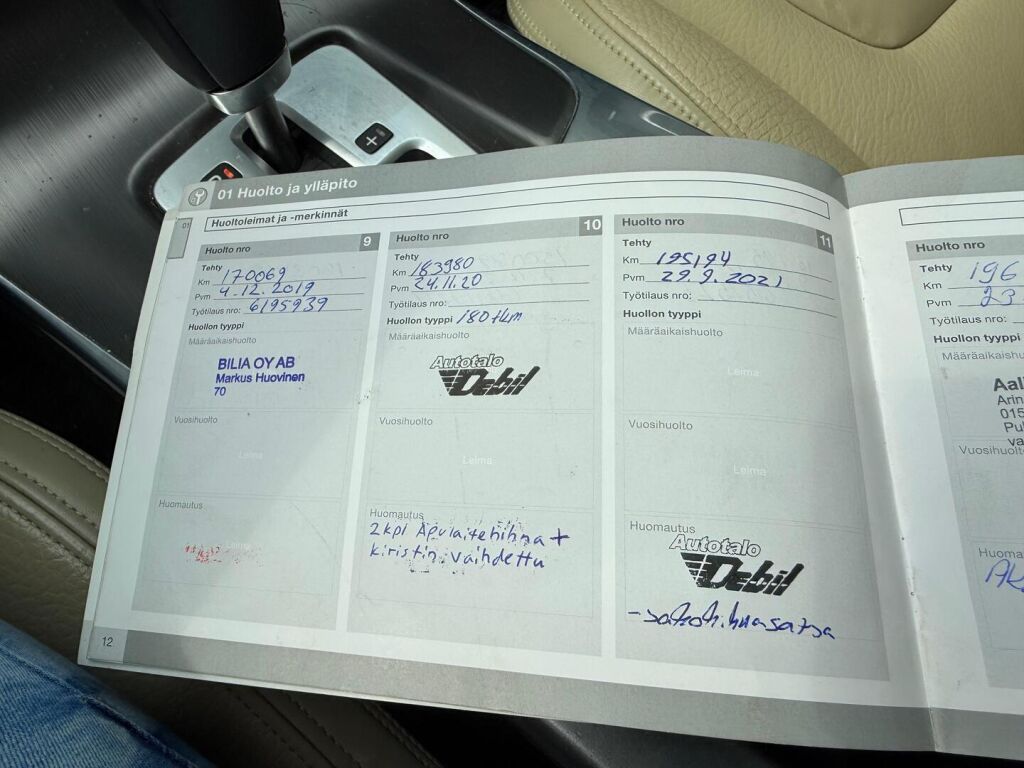 01 Huolto ja ylläpito
01
Huoltoleimat ja -merkinnät
Huolto nro 9
Tehty
Km 170069
Pvm 4.12.2019
Työtilaus nro: 6195939
Huollon tyyppi
Määräaikaishuolto
BILIA OY AB
Markus Huovinen
70
Vuosihuolto
Leima
Huomautus
Leima
Huolto nro 10
Tehty
Km 183980
Pvm 24.11.20
Työtilaus nro:
Huollon tyyppi 180 tkm
Määräaikaishuolto
Autotalo
Debil
Vuosihuolto
Leima
Huomautus
2 kpl Apulaitehihna +
kiristin vaihdettu
Huolto nro 11
Tehty
Km 195194
Pvm 29.9.2021
Työtilaus nro:
Huollon tyyppi
Määräaikaishuolto
Leima
Vuosihuolto
Leima
Huomautus
Autotalo
Debil
- jakohihnasarja
12
Huolto nro
Tehty
Km 196
Pvm 23.
Työtilaus nro:
Huollon tyyppi
Määräaikaishu
Aal
Arin
015
Pul
va
Vuosihuolt
Huoma